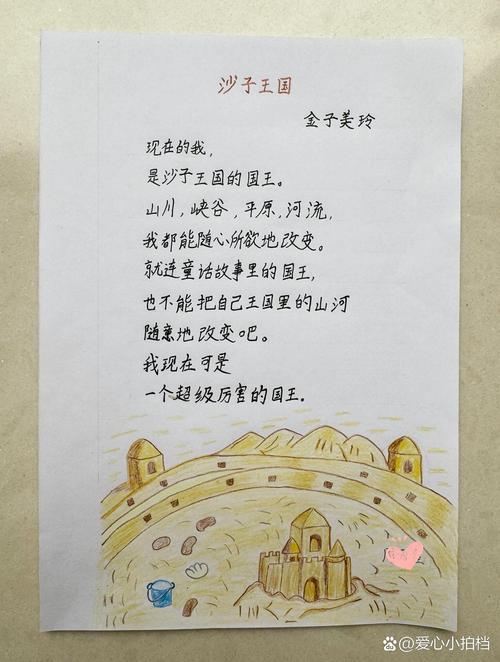 沙子王国
金子美玲
现在的我，
是沙子王国的国王。
山川，峡谷，平原，河流，
我都能随心所欲地改变。
就连童话故事里的国王，
也不能把自己王国里的山河
随意地改变吧。
我现在可是
一个超级厉害的国王.
爱心小拍档